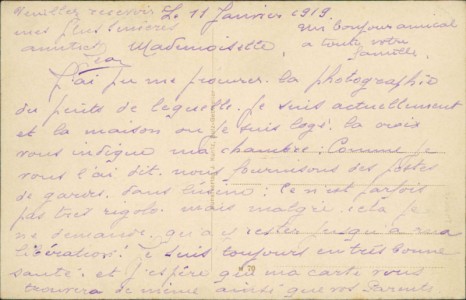 Veuillez recevoir
mes plus sincères
amitiés
Jean
Le 11 Janvier 1919.
un bonjour amical
a toute votre
famille.
Mademoiselle,
J'ai pu me procurer la photographie
du puits de laquelle je suis actuellement
et la maison ou je suis logé. la croix
vous indique ma chambre: Comme je
vous l'ai dit. nous fournissons des postes
de gardes. dans l'usine: Ce n'est parfois
pas très rigolo. mais malgré cela je
ne demande qu'a y rester jusqu'a ma
libération. Je suis toujours en très bonne
santé. et j'espère que ma carte vous
trouvera de même ainsi que vos Parents